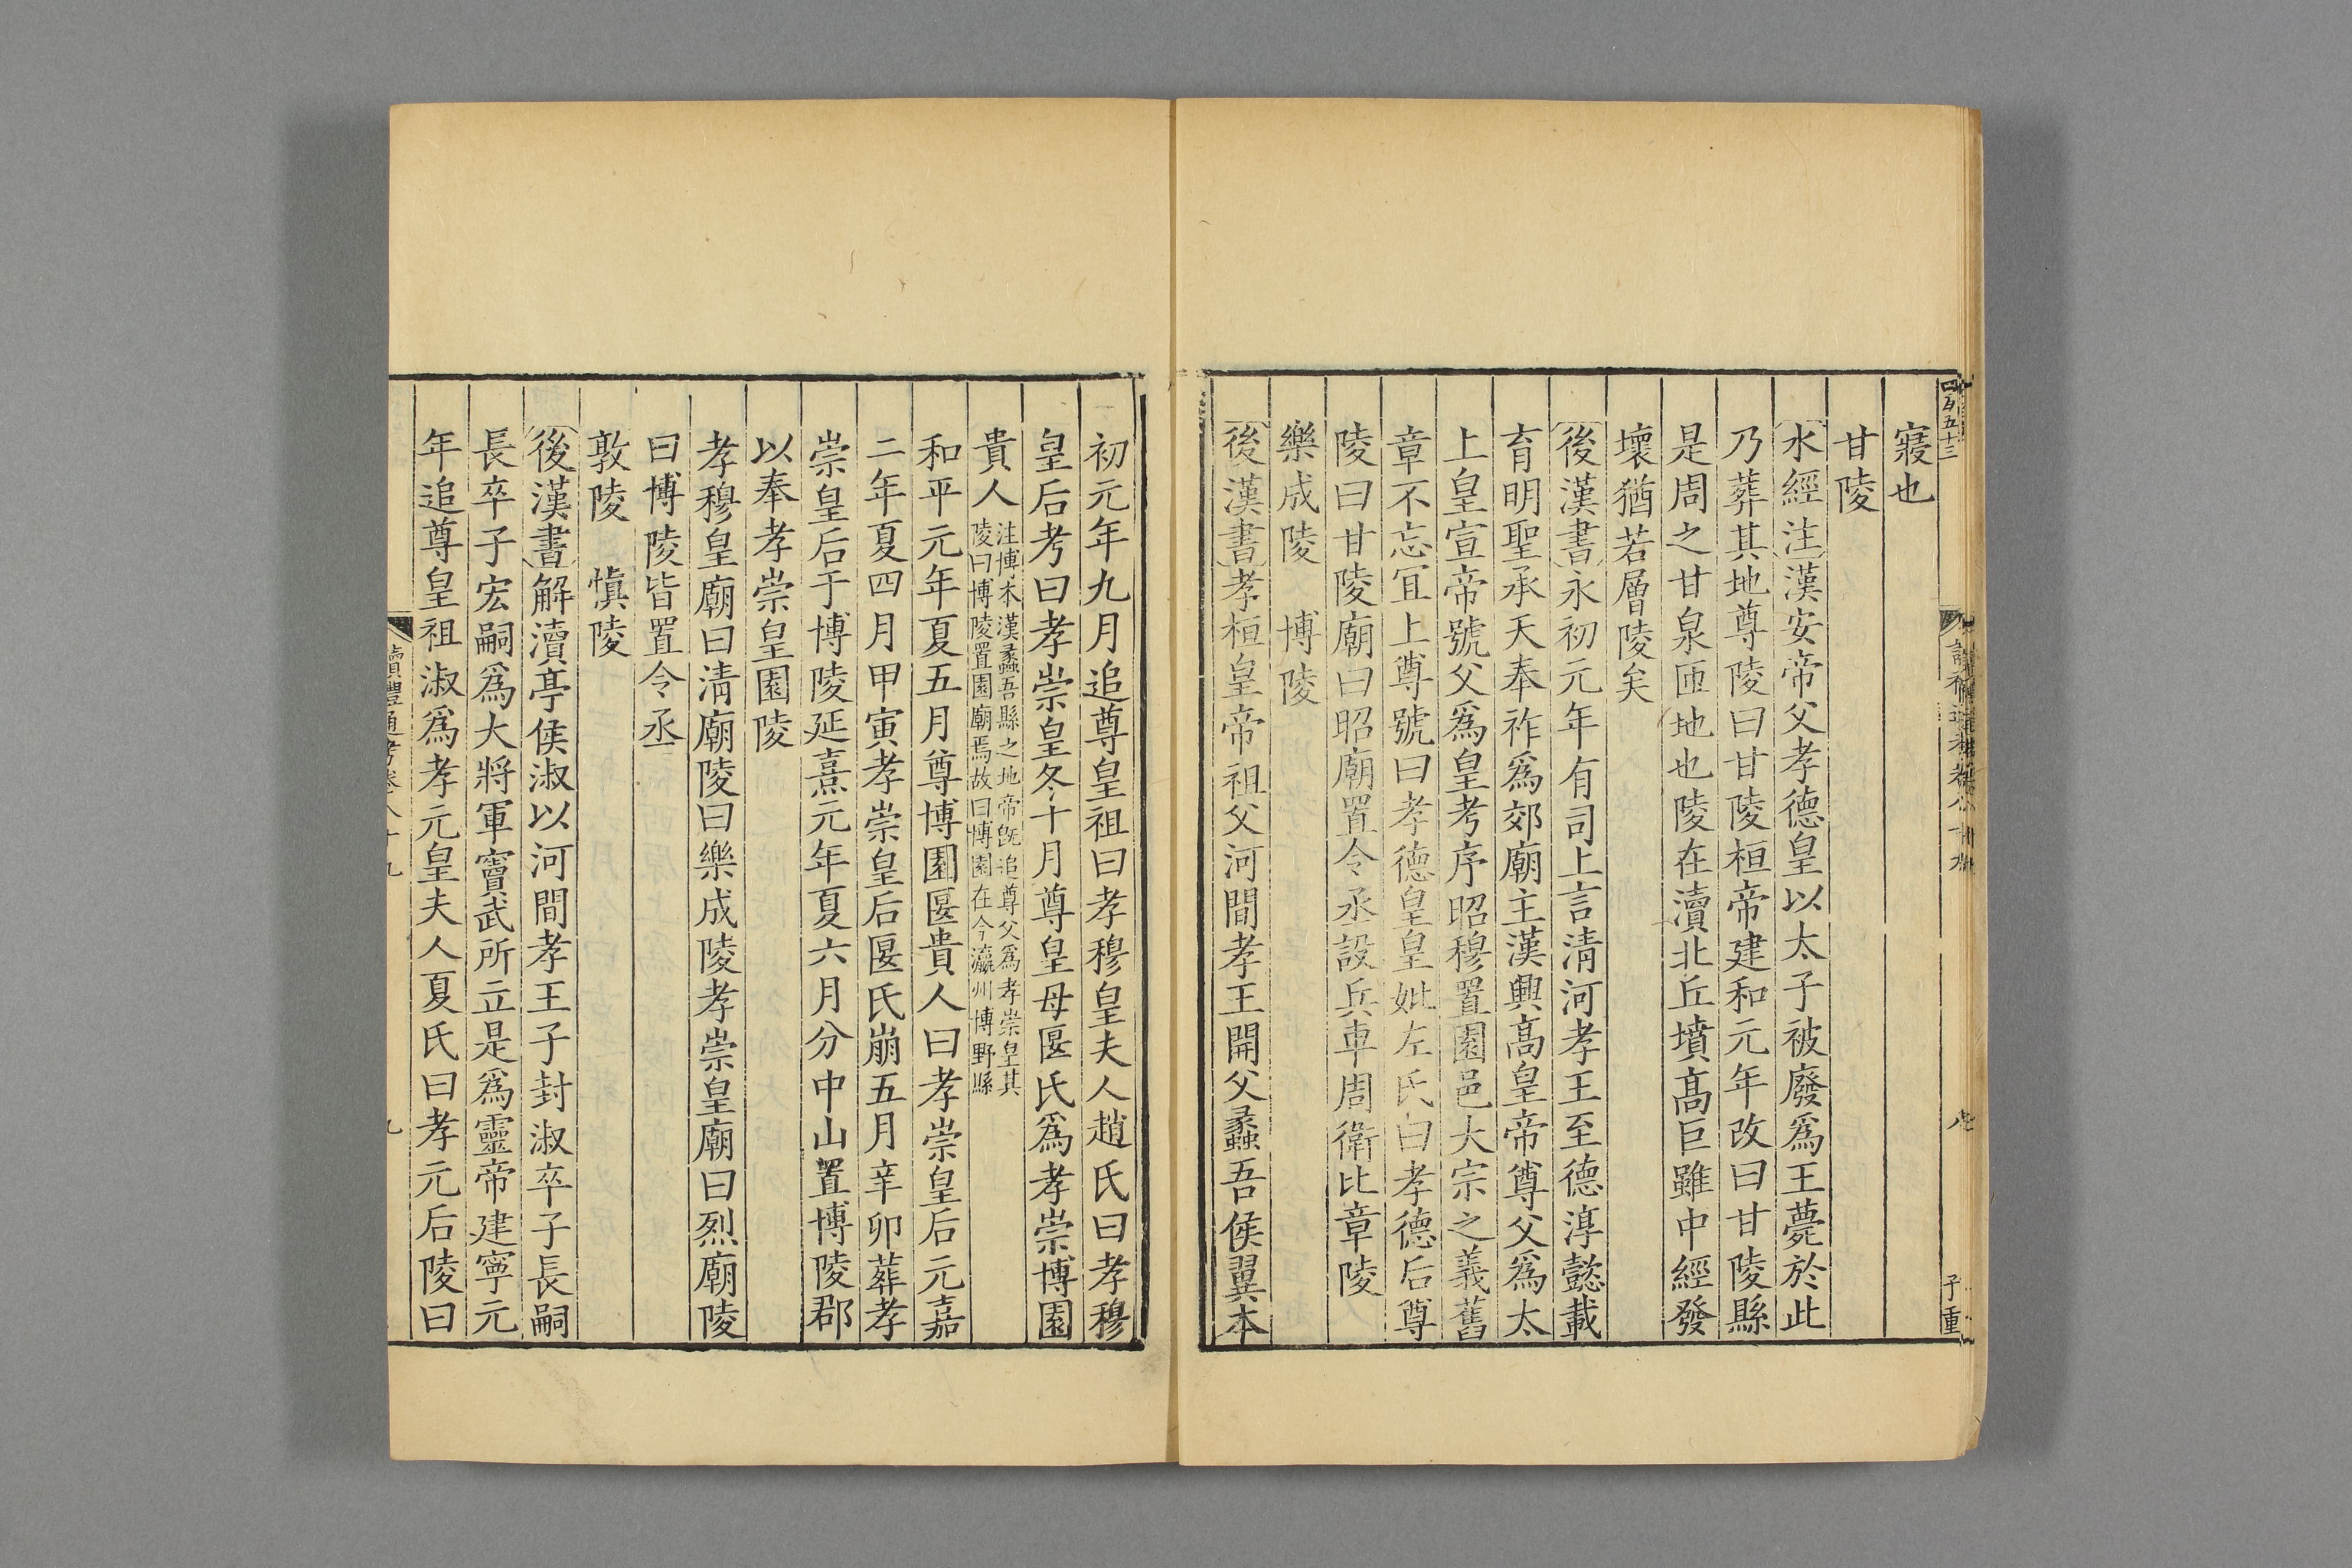 寢也
甘陵
水經注漢安帝父孝德皇以太子被廢爲王薨於此
乃葬其地尊陵曰甘陵桓帝建和元年改曰甘陵縣
是周之甘泉匝地也陵在瀆北丘墳高巨雖中經發
壞猶若層陵矣
後漢書永初元年有司上言清河孝王至德淳懿載
育明聖承天奉祚爲郊廟主漢興高皇帝尊父爲太
上皇宣帝號父爲皇考序昭穆置園邑大宗之義舊
章不忘宜上尊號曰孝德皇皇妣左氏曰孝德后尊
陵曰甘陵廟曰昭廟置令丞設兵車周衛比章陵
樂成陵　博陵
後漢書孝桓皇帝祖父河間孝王開父蠡吾侯翼本
初元年九月追尊皇祖曰孝穆皇夫人趙氏曰孝穆
皇后考曰孝崇皇冬十月尊皇母匽氏爲孝崇博園
貴人注博本漢蠡吾縣之地帝旣追尊父爲孝崇皇其
陵曰博陵置園廟焉故曰博園在今瀛州博野縣
和平元年夏五月尊博園匽貴人曰孝崇皇后元嘉
二年夏四月甲寅孝崇皇后匽氏崩五月辛卯葬孝
崇皇后于博陵延熹元年夏六月分中山置博陵郡
以奉孝崇皇園陵
孝穆皇廟曰清廟陵曰樂成陵孝崇皇廟曰烈廟陵
曰博陵皆置令丞
敦陵　愼陵
後漢書解瀆亭侯淑以河間孝王子封淑卒子長嗣
長卒子宏嗣爲大將軍竇武所立是爲靈帝建寧元
年追尊皇祖淑爲孝元皇夫人夏氏曰孝元后陵曰
讀禮通考卷八十九
九